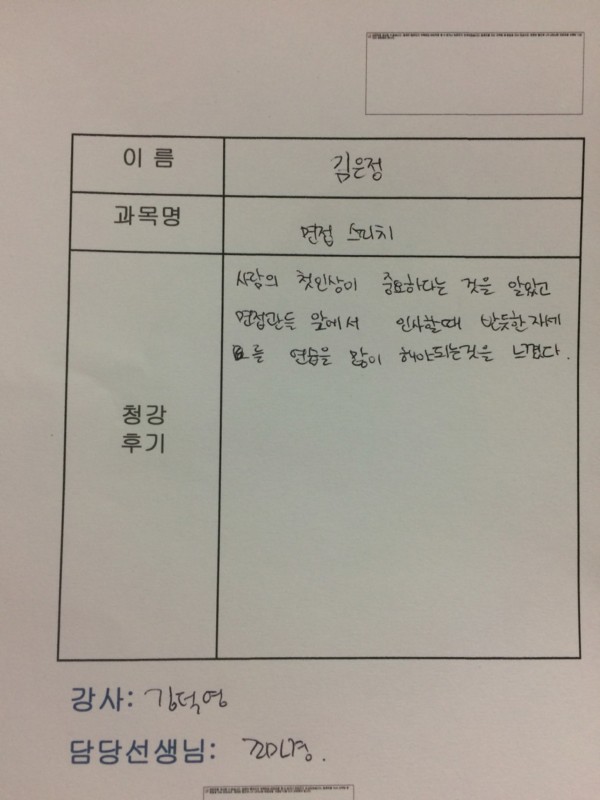 이 름
김은정
과목명
면접 스피치
사람의 첫인상이 중요하다는 것을 알았고
면접관득 앞에서 인사할때 반듯한자세
를 연습을 많이 해야되는것을 느꼈다.
청강
후기
강사: 김덕영
담당선생님: